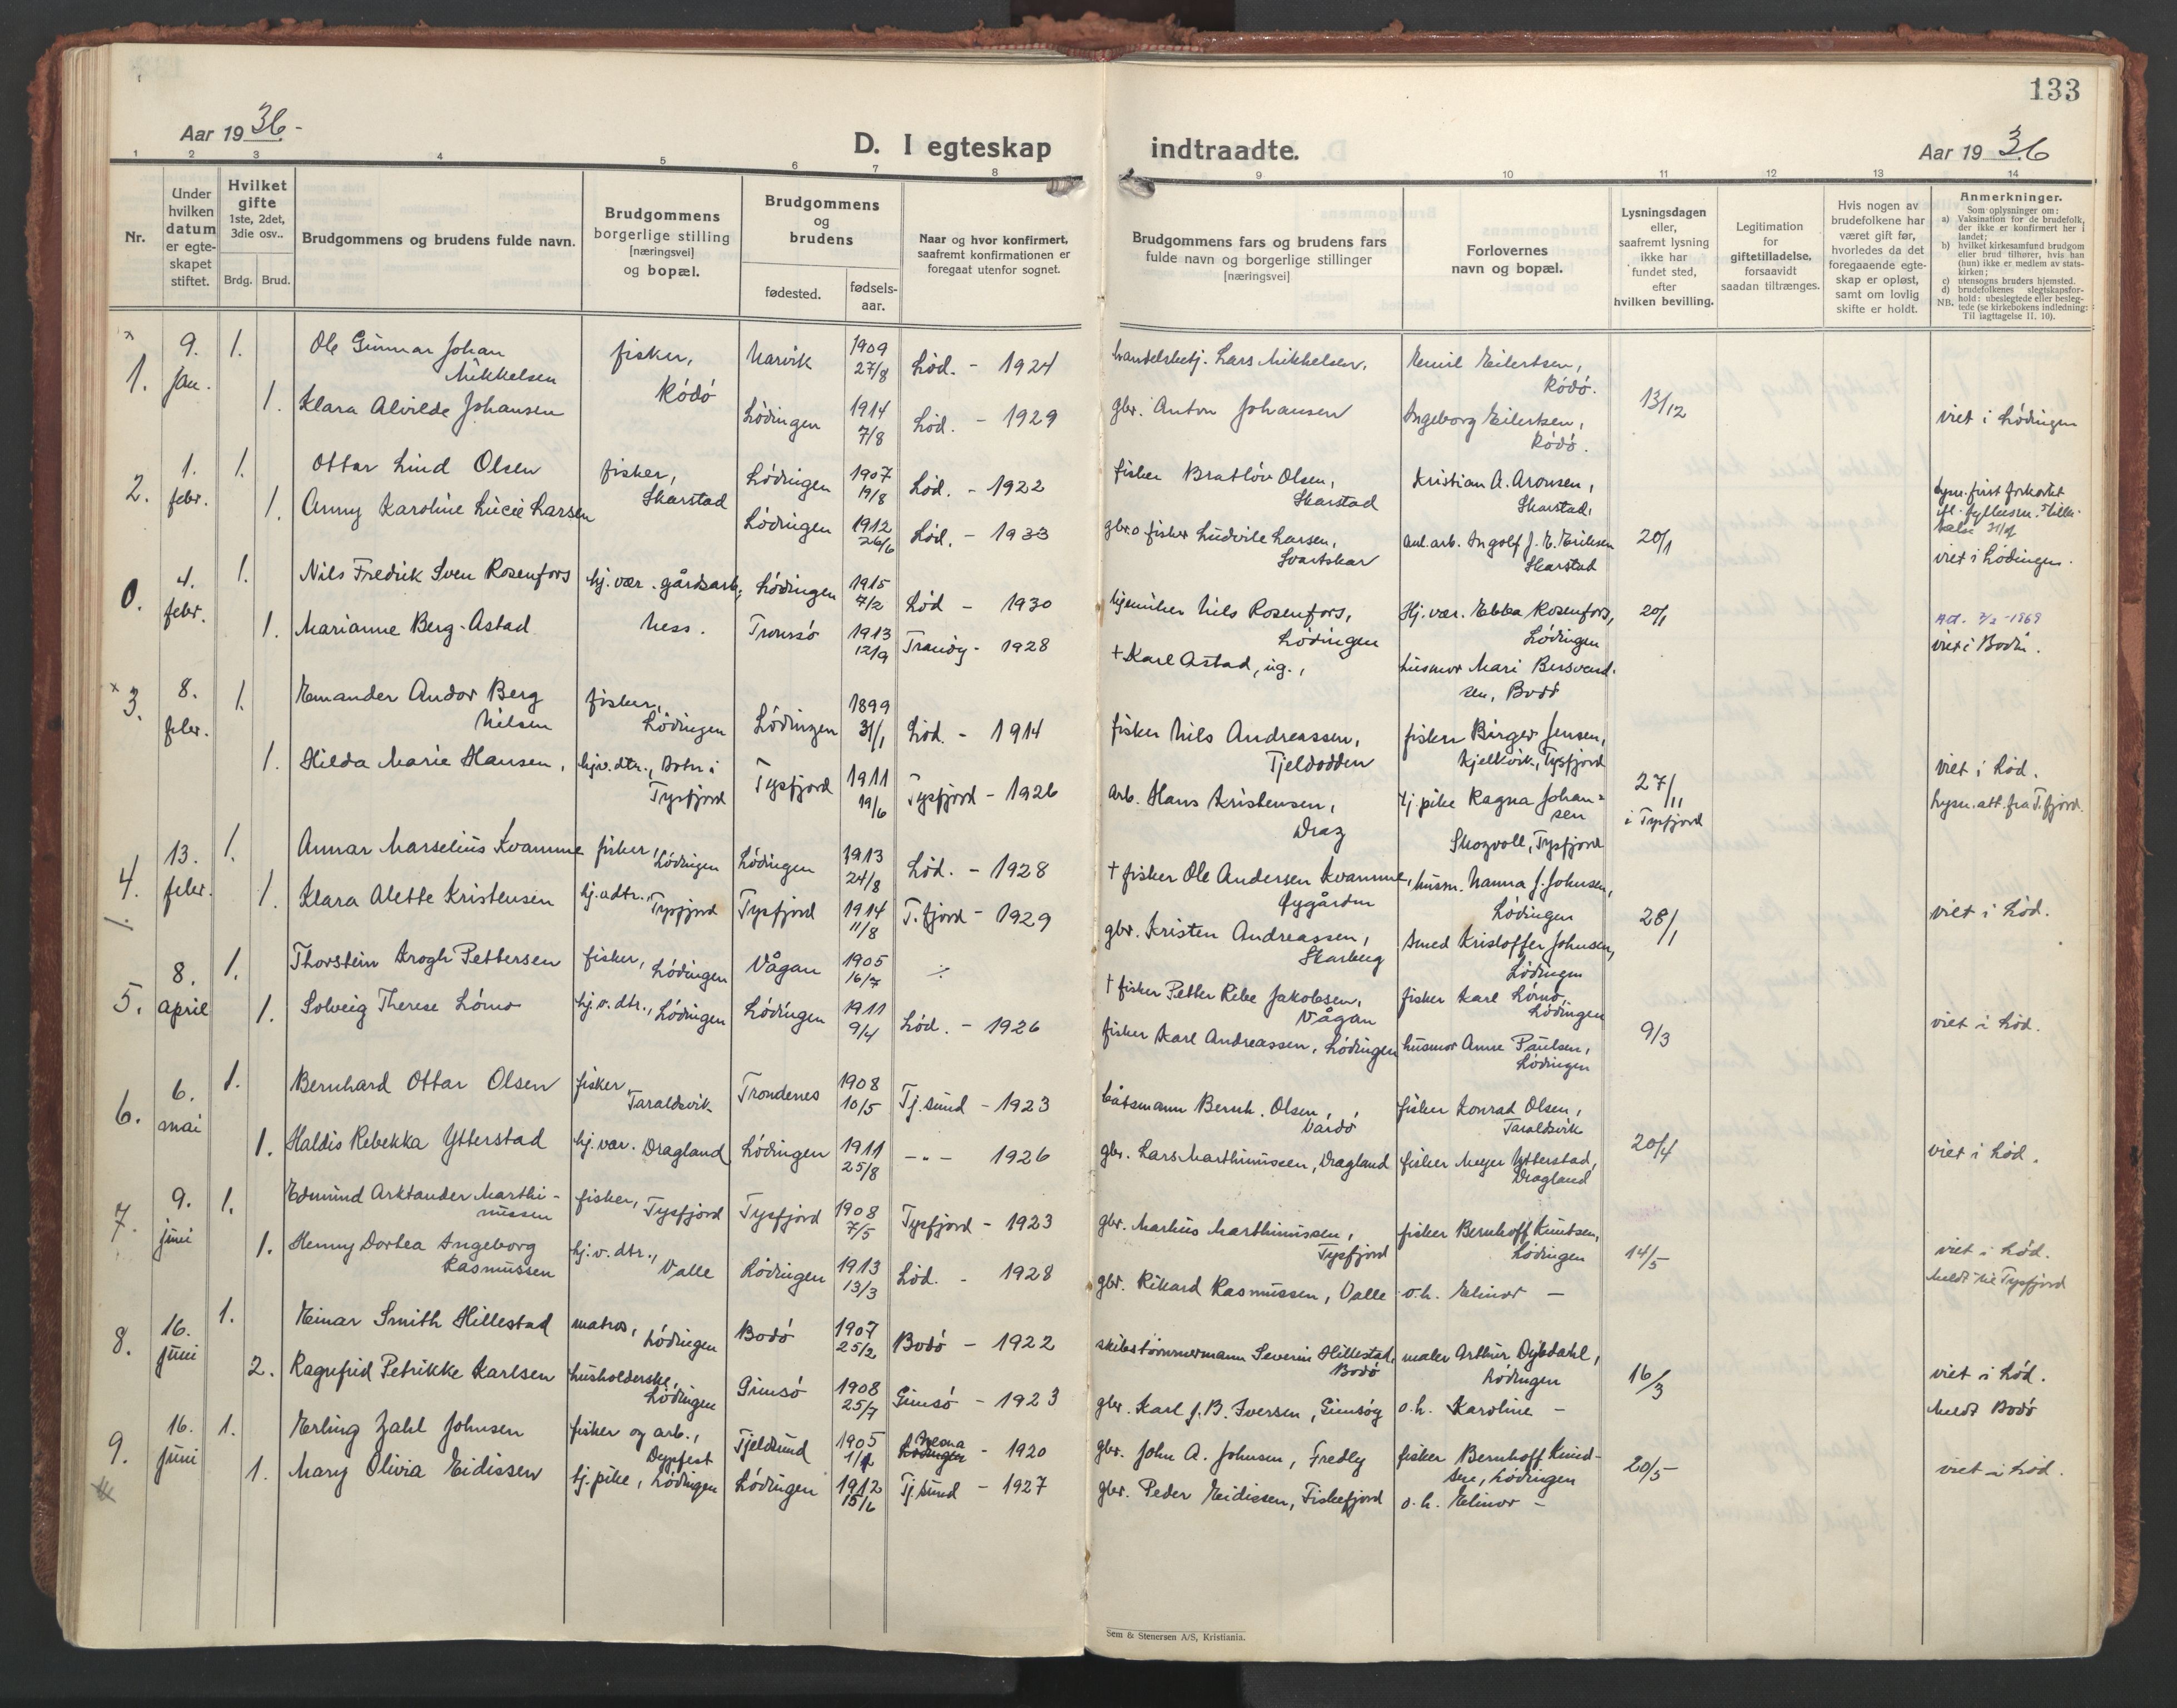 133
Aar 1936-
D. I egteskap indtraadte.
Aar 1936
1 2 3 4 5 6 7 8 9 10 11 12 13 14
Nr.
Under hvilken datum er egteskapet stiftet.
Hvilket gifte 1ste, 2det, 3die osv..
Brdg. Brud.
Brudgommens og brudens fulde navn.
Brudgommens borgerlige stilling [næringsvei] og bopæl.
Brudgommens og brudens
fødested.
fødsels-aar.
Naar og hvor konfirmert, saafremt konfirmationen er foregaat utenfor sognet.
Brudgommens fars og brudens fars fulde navn og borgerlige stillinger [næringsvei]
Forlovernes navn og bopæl.
Lysningsdagen eller, saafremt lysning ikke har fundet sted, efter hvilken bevilling.
Legitimation for giftetilladelse, forsaavidt saadan tiltrænges.
Hvis nogen av brudefolkene har været gift før, hvorledes da det foregaaende egteskap er opløst, samt om lovlig skifte er holdt.
Anmerkninger.
Som oplysninger om:
a) Vaksination for de brudefolk, der ikke er konfirmert her i landet;
b) hvilket kirkesamfund brudgom eller brud tilhører, hvis han (hun) ikke er medlem av statskirken;
c) utensogns bruders hjemsted.
d) brudefolkenes slegtskapsforhold: ubeslegtede eller beslegtede (se kirkebokens indledning: Til iagttagelse II, 10).
NB.
1. 9. jan. 1. Ole Gunnar Johan Mikkelsen fisker, Rödö Narvik 1909 27/8 Löd. - 1924 handelsbetj. Lars Mikkelsen. Emil Eilertsen, Rödö.
1. Klara Alvilde Johansen Lödingen 1914 7/8 Löd. - 1929 gbr. Anton Johansen Ingeborg Eilertsen, Rödö. 13/12 viet i Lödingen
2. 1. febr. 1. Ottar Lind Olsen fisker, Skarstad Lödingen 1907 19/8 Löd. - 1922 fisker Bratlöv Olsen, Skarstad Kristian A. Aronsen, Skarstad,
1. Anny Karoline Lucie Larsen Lödingen 1912 26/6 Löd. - 1933 gbr. o. fisker Ludvik Larsen, Svartskar anl. arb. Ingolf J. E. Eriksen Skarstad 20/1 viet i Lödingen.
0. 4. febr. 1. Nils Fredrik Sven Rosenfors hj. vær. gårdsarb., Ness. Lödingen 1915 7/2 Löd - 1930 Nils Rosenfors, Lödingen Hj. vær. Ebba Rosenfors, Lödingen 20/1
1. Marianne Berg-Astad Tromsö 1913 12/9 Tranöy - 1928 + Karl Astad, ug., husmor Mari Bersvendsen, Bodö viet i Bodin.
3. 8. febr. 1. Emander Andor Berg Nilsen fisker, Lödingen Lödingen 1899 31/1 Löd. - 1914 fisker Nils Andreassen, Tjeldodden fisker Birger Jensen, Kjelkvik, Tysfjord
1. Hilda Marie Hansen, hjv. dtr., Botn i Tysfjord Tysfjord 1911 19/6 Tysfjord - 1926 arb. Hans Kristensen, Drag tj. pike Ragna Johansen Skogvoll, Tysfjord 27/11 i Tysfjord viet i Löd. lysn. att. fra T.fjord.
4. 13. febr. 1. Annar Marselius Kvamme fisker, Lödingen Lödingen 1913 24/8 Löd. - 1928 + fisker Ole Andersen Kvamme, Öygården husm. Nanna J. Johnsen, Lödingen
1. Klara Alette Kristensen hj. adtr., Tysfjord Tysfjord 1914 11/8 T.fjord - 1929 gbr. Kristen Andreassen, Skarberg smed Kristoffer Johnsen, Lödingen 28/1 viet i Löd.
5. 8. april 1. Thorstein Krogh Pettersen fisker, Lödingen Vågan 1905 16/7 ·/. + fisker Petter Ribe Jakobsen, Vågan fisker Karl Lömo, Lödingen
1. Solveig Therese Lömo hj. v. dtr., Lödingen Lödingen 1911 9/4 Löd. - 1926 fisker Karl Andreassen, Lödingen husmor Anne Paulsen, Lödingen 9/3 viet i Löd.
6. 6. mai 1. Bernhard Ottar Olsen fisker Taraldsvik Trondenes 1908 10/5 Tj.sund - 1923 båtsmann Bernh. Olsen, Vardö fisker Konrad Olsen, Taraldsvik
1. Haldis Rebekka Ytterstad hj. vær. Dragland Lödingen 1911 25/8 -"- 1926 gbr. Lars Marthinussen, Dragland fisker Meyer Ytterstad, Dragland 20/4 viet i Löd.
7. 9. juni 1. Edmund Arktander Marthinussen fisker, Tysfjord Tysfjord 1908 7/5 Tysfjord - 1923 gbr. Markus Marthinussen, Tysfjord fisker Bernhoff Knutsen, Lödingen 14/5
1. Henny Dortea Ingeborg Rasmussen hj. v. dtr., Valle Lödingen 1913 13/3 Löd. - 1928 gbr. Rikard Rasmussen, Valle o. h. Elinor - viet i Löd. Meldt til Tysfjord
8. 16. juni 1. Einar Smith Hillestad matros, Lödingen Bodö 1907 25/2 Bodö - 1922 skibstömmermann Severin Hillestad, Bodö maler Arthur Dybdahl, Lödingen 16/3
2. Ragnfrid Petrikke Karlsen husholderske, Lödingen Gimsö 1908 25/7 Gimsö - 1923 gbr. Karl J. B. Iversen, Gimsöy o. h. Karoline - viet i Löd. Meldt Bodö
9. 16. juni 1. Erling Zahl Johnsen fisker og arb., Dypfest Tjeldsund 1905 Lödingen - 1920 gbr. John A. Johnsen, Fredly fisker Bernhoff Knudsen, Lödingen 20/5
1. Mary Olivia Eidissen tj. pike, Lödingen Lödingen 1912 15/6 Tj.sund - 1927 gbr. Peder Eidissen, Fiskefjord o. h. Elinor - viet i Löd.
Sem & Stenersen A/S, Kristiania.